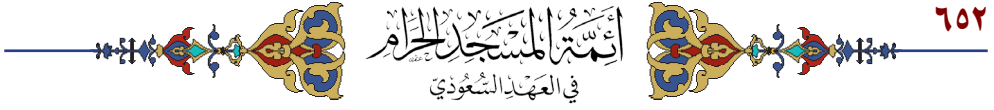 ٦٥٢
أَئِمَّةُ المَسْجِدِ الحَرَامِ
فِي العَهْدِ السُّعُودِيّ